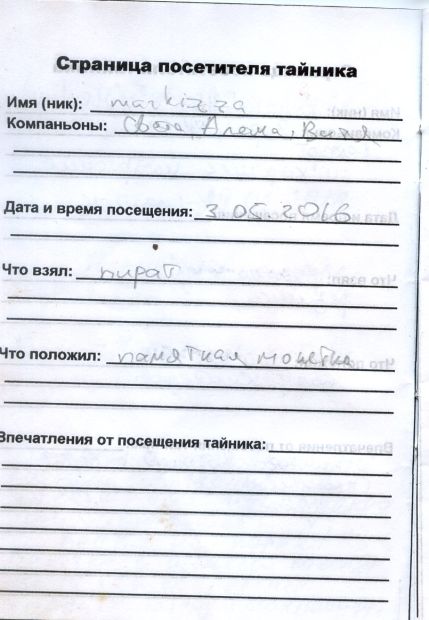 Страница посетителя тайника
Имя (ник): markizza
Компаньоны: Света, Алена, Витя
Дата и время посещения: 3 05 2016
Что взял: пират
Что положил: памятная монетка
Впечатления от посещения тайника: